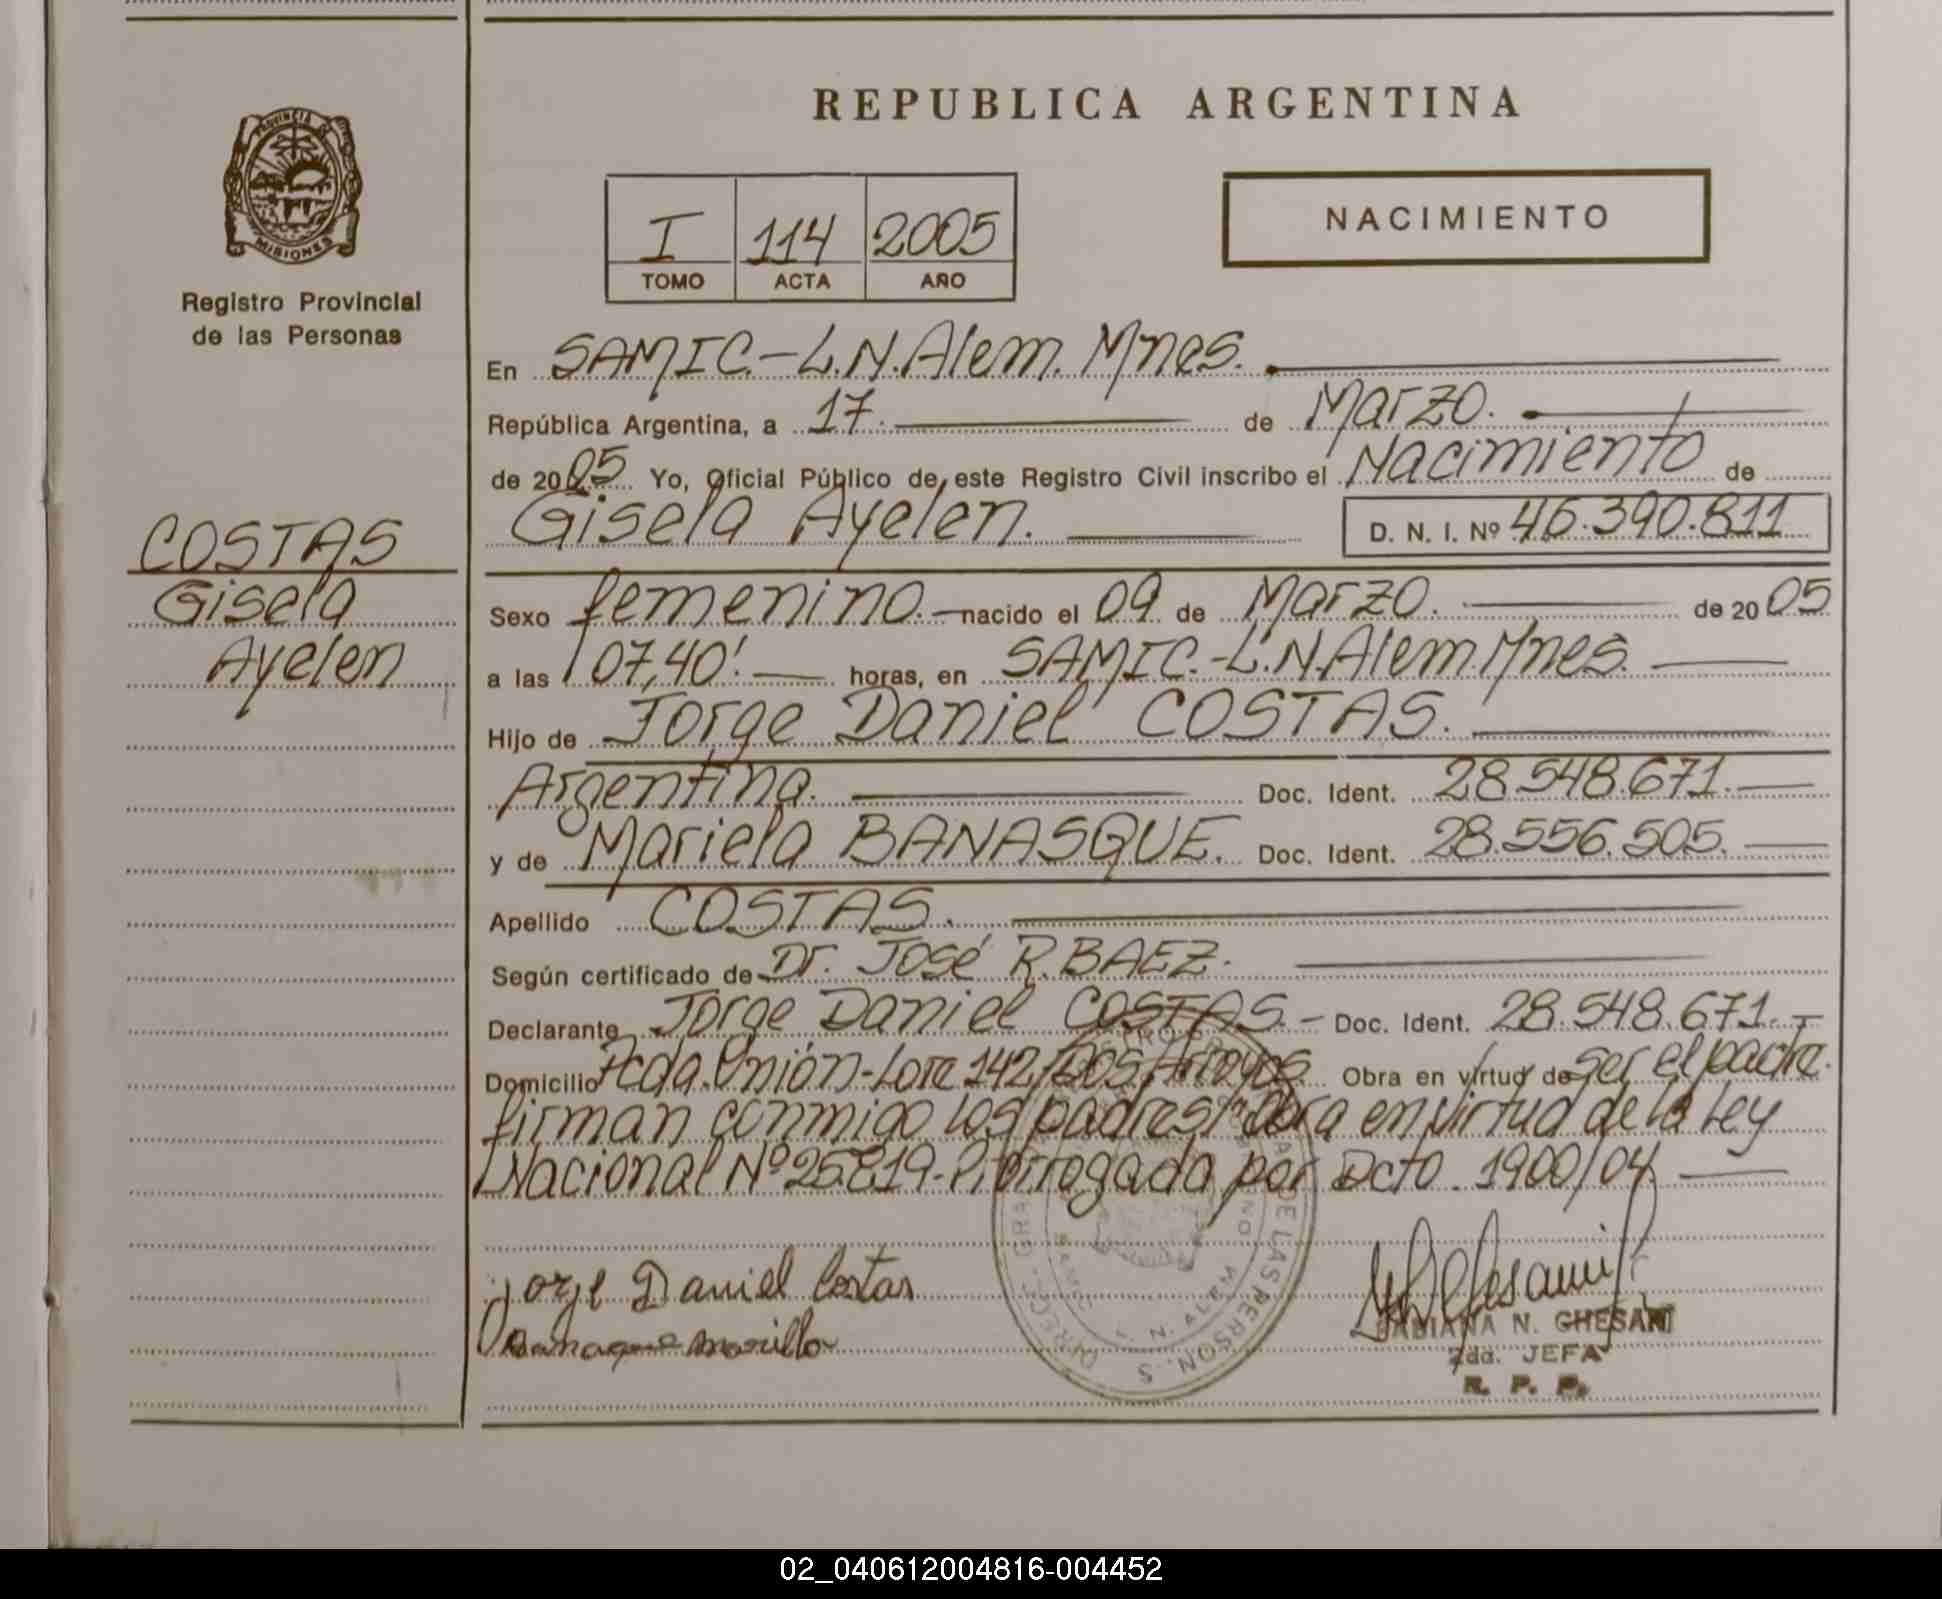 REPUBLICA ARGENTINA
PROVINCIA DE
MISIONES
Registro Provincial
de las Personas
I 114 2005
TOMO ACTA AÑO
NACIMIENTO
En SAMIC.-L.N.Alem. Mnes.
República Argentina, a 17. de Marzo.
de 2005 Yo, Oficial Público de este Registro Civil inscribo el Nacimiento de
Gisela Ayelen. D. N. I. Nº 46.390.811
COSTAS
Gisela
Ayelen
Sexo femenino.- nacido el 09 de Marzo. de 2005
a las 07,40'. horas, en SAMIC.-L.N.Alem.Mnes.
Hijo de Jorge Daniel COSTAS.
Argentina. Doc. Ident. 28.548.671.
y de Mariela BANASQUE. Doc. Ident. 28.556.505.
Apellido COSTAS.
Según certificado de Dr. José R. BAEZ.
Declarante Jorge Daniel COSTAS.- Doc. Ident. 28.548.671.-
Domicilio Pcda. Unión-Lote 142, Dos Arroyos Obra en virtud de ser el padre.
firman conmigo los padres, obra en virtud de la Ley
Nacional Nº 25.819- Prorrogada por Dcto. 1900/04
Jorge Daniel Costas
FABIANA N. GHESANI
2da. JEFA
R. P. P.
L. N. ALEM
DE LAS PERSONAS
02_040612004816-004452